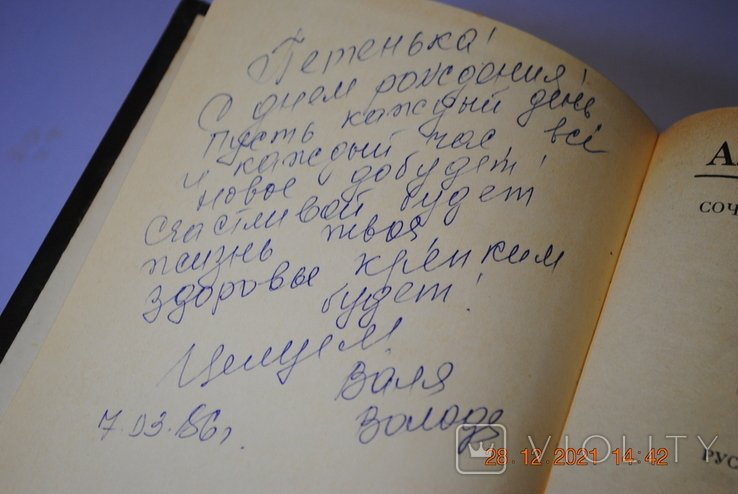 Петенька!
С днем рождения!
Пусть каждый день
и каждый час, всё
новое добудет!
Счастливой будет
жизнь твоя,
здоровье крепким
будет!
Целуем
Валя
Володя
7.03.86г.
А
СОЧ
РУС
VIOLITY
28.12.2021 14:42